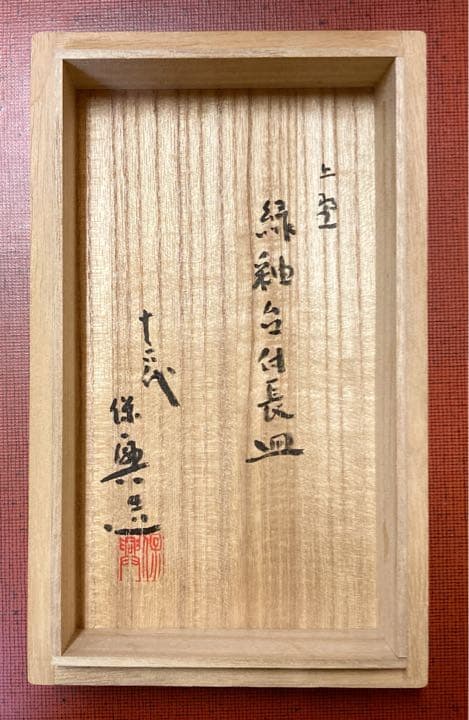 上埜
緑釉台付長皿
十二代
保興造
保興